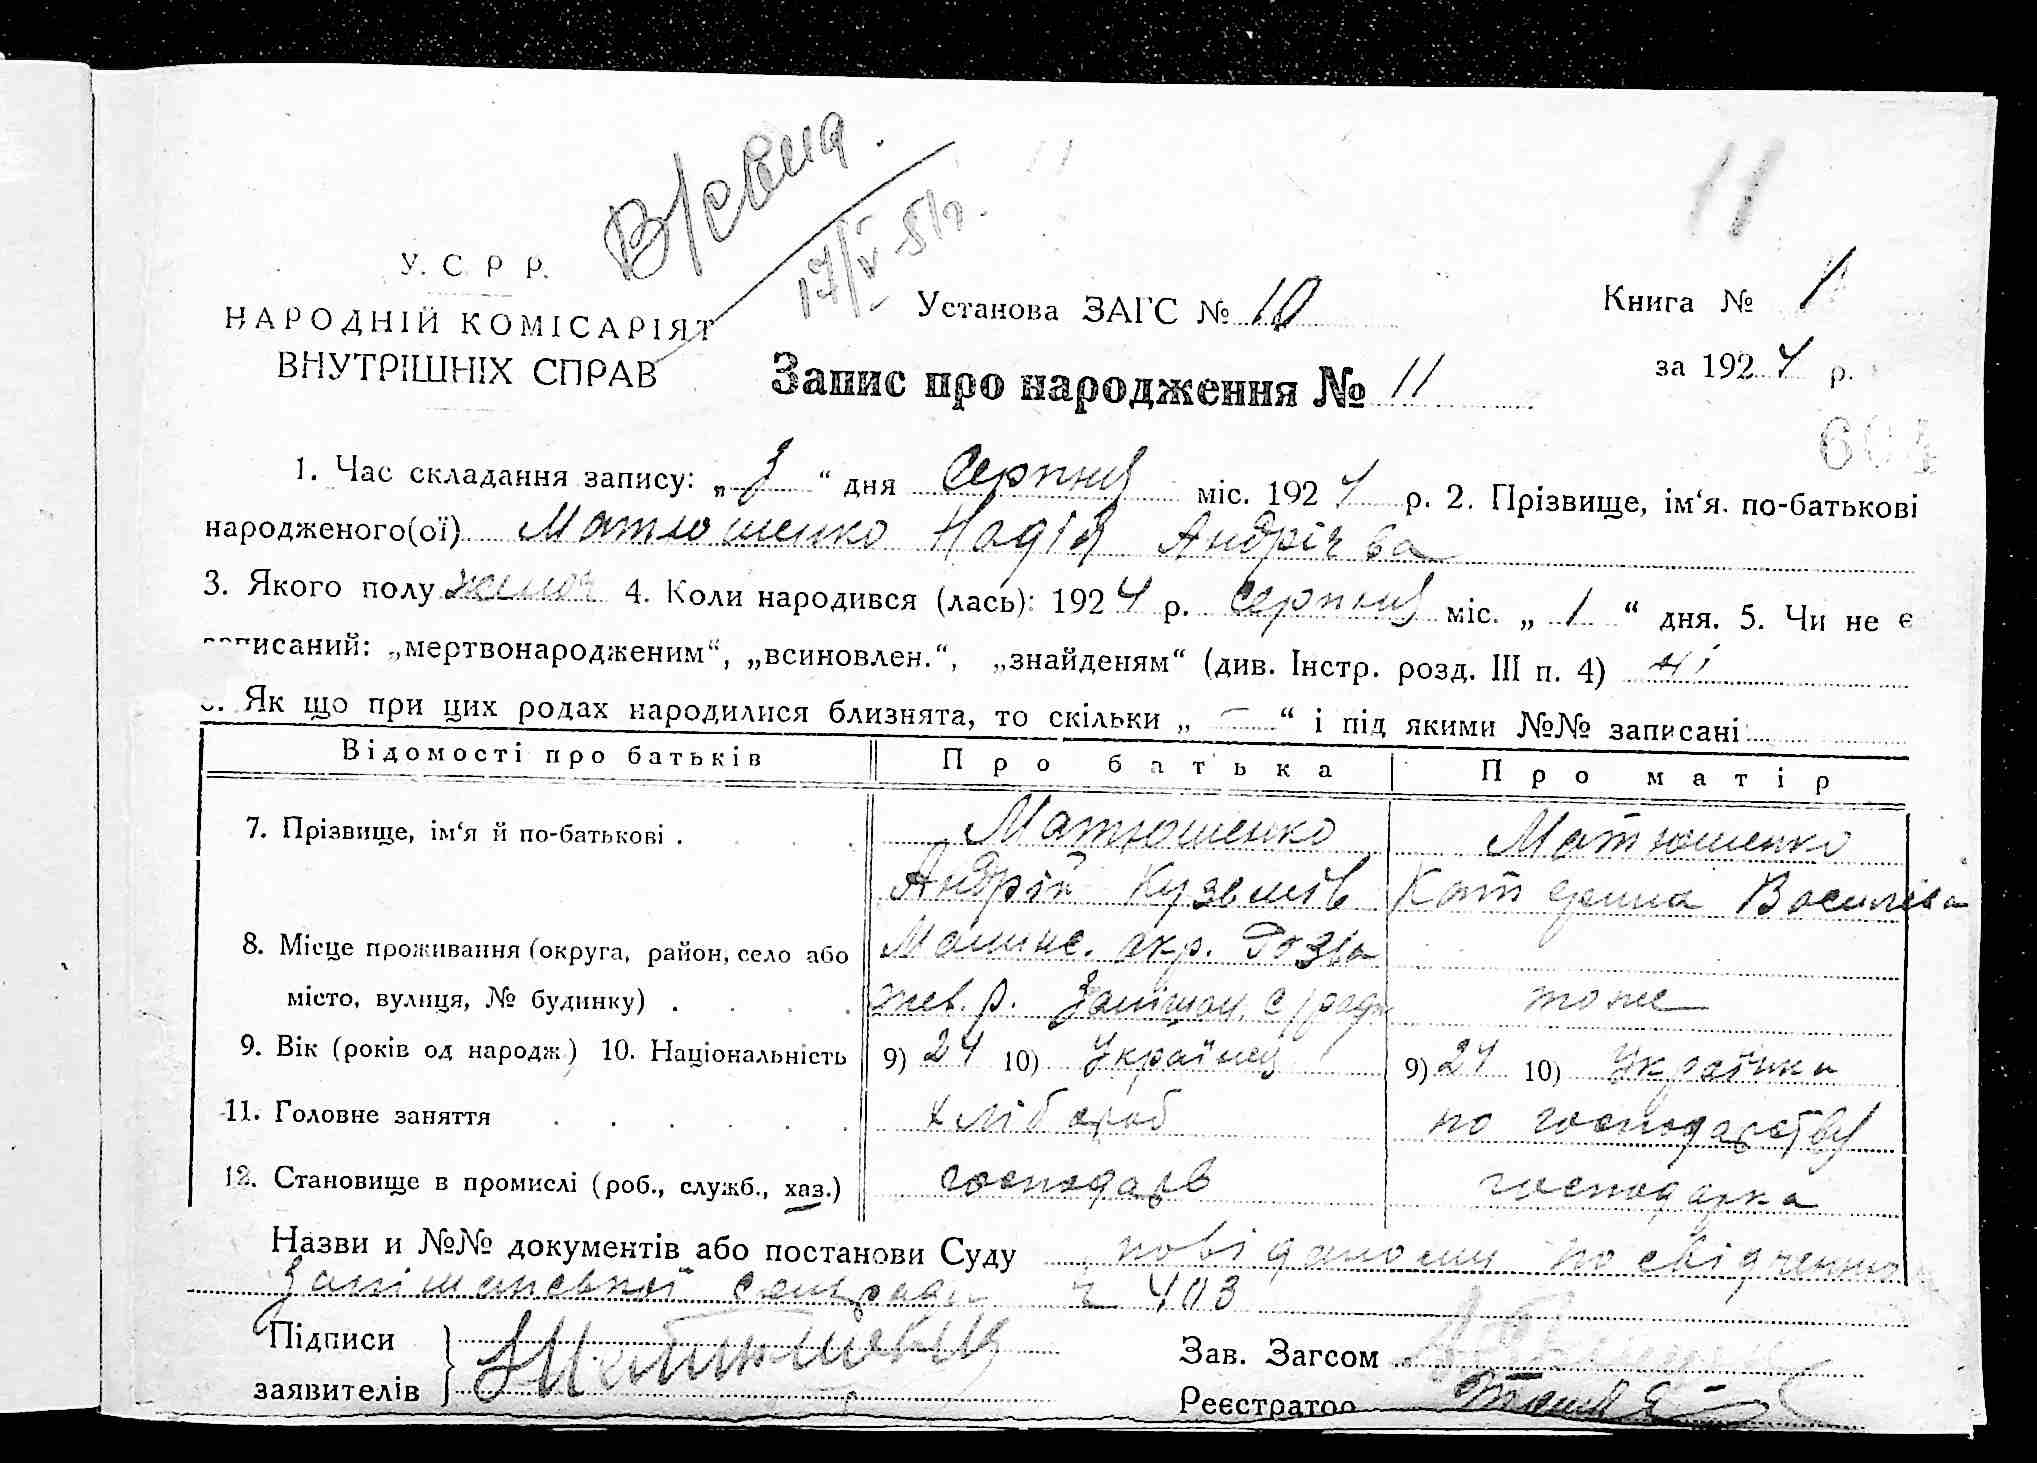 11
В/свна.
17/V 51 г.
У. С. Р. Р.
НАРОДНІЙ КОМІСАРІЯТ
ВНУТРІШНІХ СПРАВ
Установа ЗАГС № 10
Книга № 1
за 1924 р.
Запис про народження № 11
604
1. Час складання запису: „3“ дня Серпня міс. 1924 р. 2. Прізвище, ім‘я. по-батькові
народженого(ої) Матюшенко Надія Андріїва
3. Якого полу жіноч 4. Коли народився (лась): 1924 р. Серпня міс. „1“ дня. 5. Чи не є
записаний: „мертвонародженим“, „всиновлен.“, „знайденям“ (див. Інстр. розд. III п. 4) ні
6. Як що при цих родах народилися близнята, то скільки „ – “ і під якими №№ записані
Відомості про батьків Про батька Про матір
7. Прізвище, ім‘я й по-батькові . Матюшенко Матюшенко
Андрій Кузьмів Катерина Василіва
8. Місце проживання (округа, район, село або Малинс. окр. Розва
місто, вулиця, № будинку) . жев. р. с/ради тоже
9. Вік (років од народж.) 10. Національність 9) 24 10) Українец 9) 24 10) Українка
11. Головне заняття хлібороб по господарству
12. Становище в промислі (роб., служб., хаз.) господарь господарка
Назви и №№ документів або постанови Суду посвідченню
сельради ч 403
Підписи
заявителів
Зав. Загсом
Реєстратор